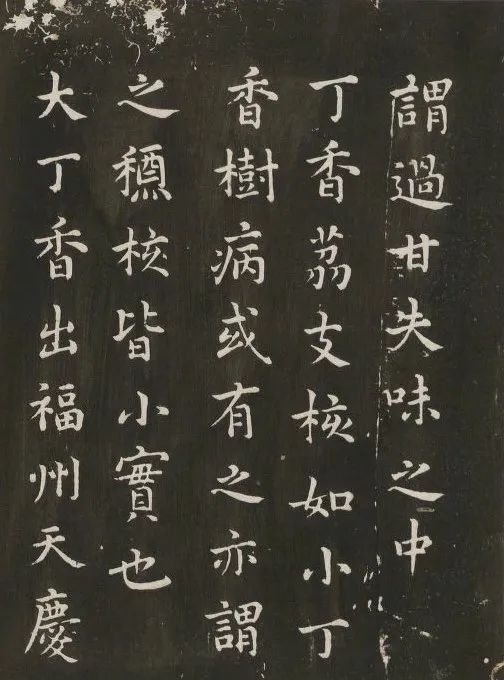 謂過甘失味之中
丁香荔支核如小丁
香樹病或有之亦謂
之穛核皆小實也
大丁香出福州天慶